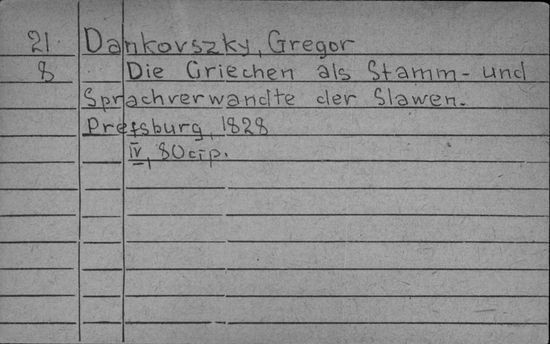 21 Dankovszky, Gregor
8 Die Griechen als Stamm- und
Sprachverwandte der Slawen.
Prefsburg, 1828
IV, 80 стр.